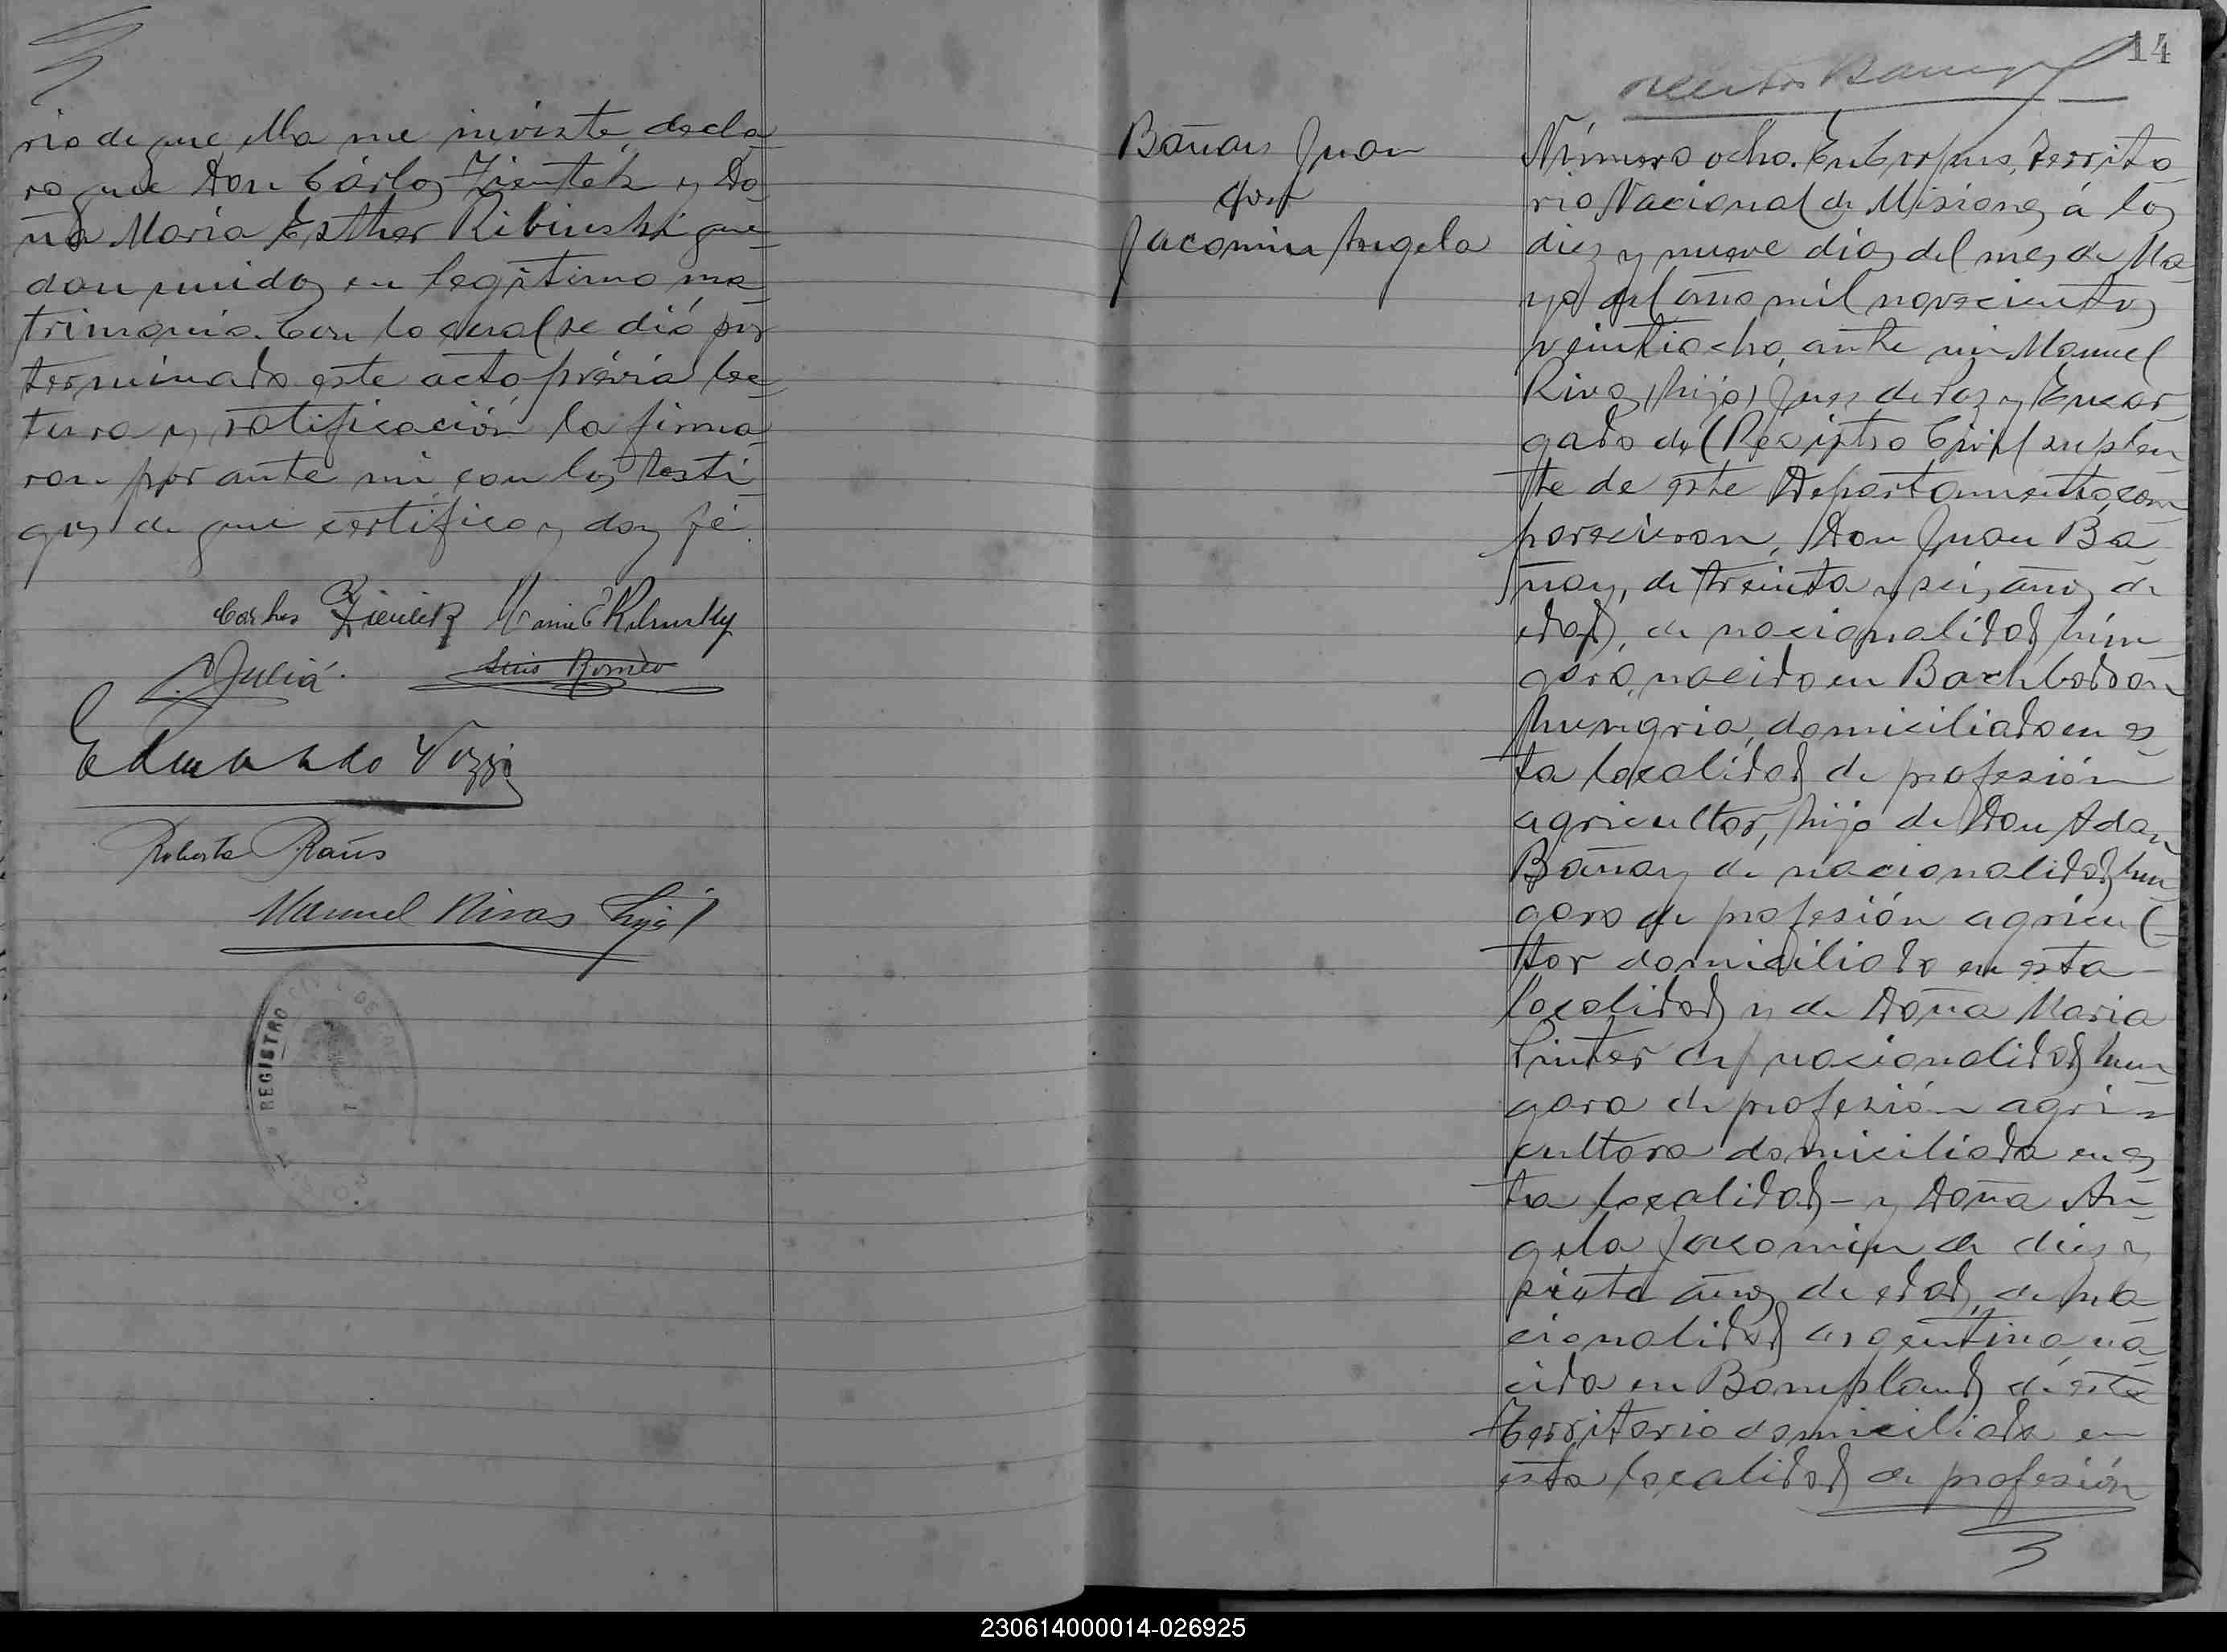 rio de que ella me inviste, decla-
ro que Don Cárlos Zientek y Do-
ña María Esther Ribinski que-
dan unidos en legítimo ma-
trimonio. Con lo cual se dió por
terminado este acto prévia lec-
tura y ratificación la firma-
ron por ante mi con los testi-
gos de que certifico y doy fé.
Carlos Zientek Maria E Ribinsky
Juliá. Luis Romeo
Eduardo Vozzi
Roberto
Manuel Rivas hijo
REGISTRO
14
Bañay Juan
con
Jacomin Angela
Número ocho. En Corpus, Territo-
rio Nacional de Misiones á los
diez y nueve dias del mes de Ma-
yo del año mil novecientos
veintiocho, ante mi Manuel
Rivas, hijo, Juez de Paz y Encar-
gado del Registro Civil suplen-
te de este Departamento, com-
parecieron, Don Juan Ba-
ñay, de treinta y seis años de
edad, de nacionalidad hún-
gara, nacido en
hungria, domiciliado en es-
ta localidad de profesión
agricultor, hijo de Don Adan
Bañay de nacionalidad hun-
gara de profesión agricul-
tor domiciliado en esta
localidad y de Doña Maria
Pinter de nacionalidad hun-
gara de profesión agri-
cultora domiciliada en es-
ta localidad - y Doña An-
gela Jacomin de diez y
siete años de edad, de na-
cionalidad argentina, na-
cida en Bompland de este
Territorio domiciliada en
esta localidad de profesión
230614000014-026925